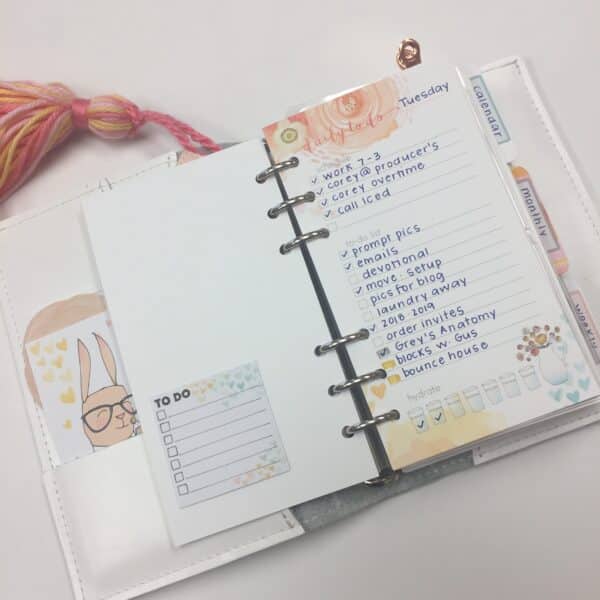 Tuesday
daily to do
work 7-3
corey @ producer's
corey overtime
call iced
to-do list
prompt pics
emails
devotional
move setup
pics for blog
laundry away
2018 2019
order invites
Grey's Anatomy
blocks w. Gus
bounce house
hydrate
TO DO
calendar
monthly
weekly